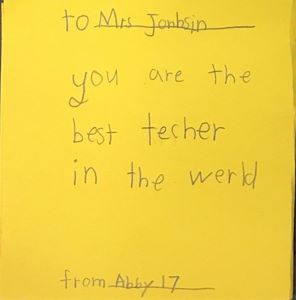 to Mrs Jonhsin
you are the
best techer
in the werld
from Abby 17